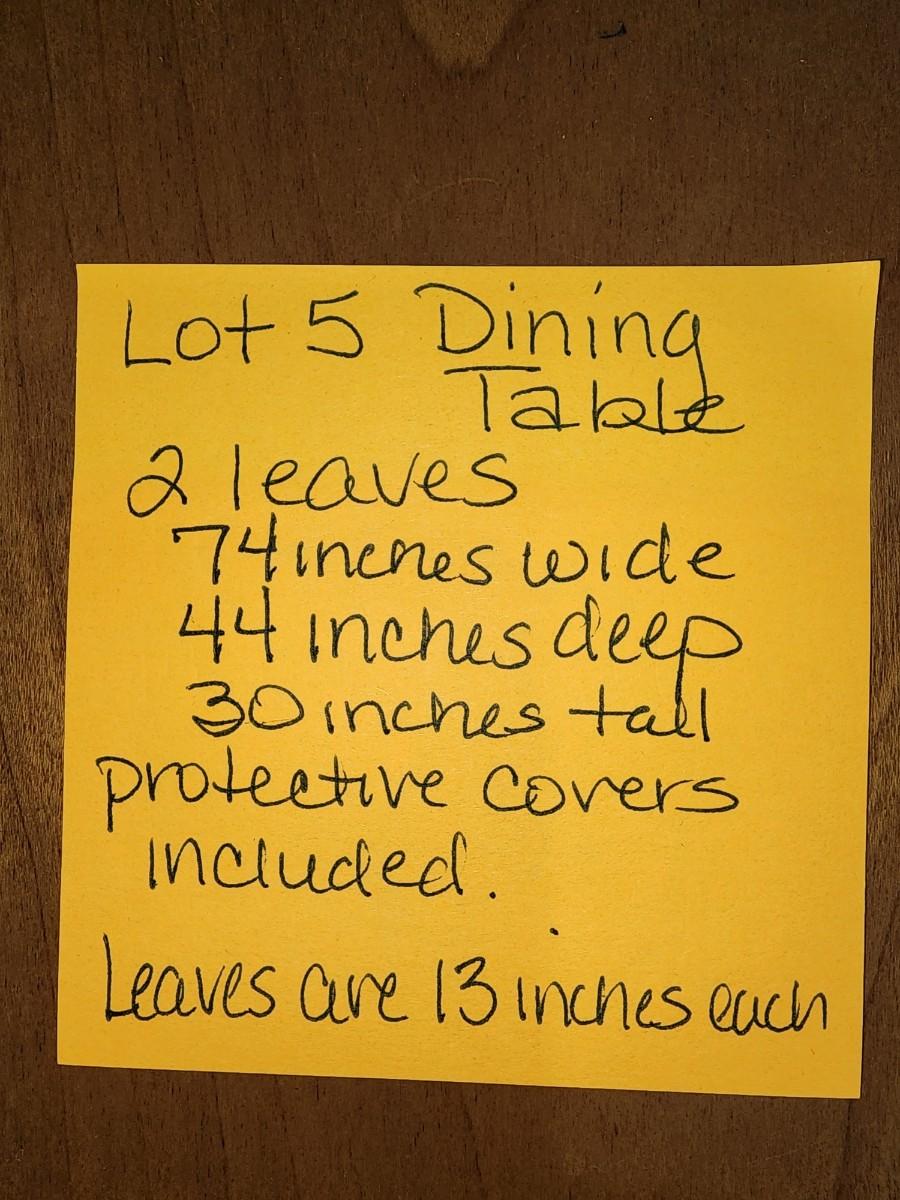 Lot 5 Dining
Table
2 leaves
74 inches wide
44 inches deep
30 inches tall
protective covers
included.
Leaves are 13 inches each